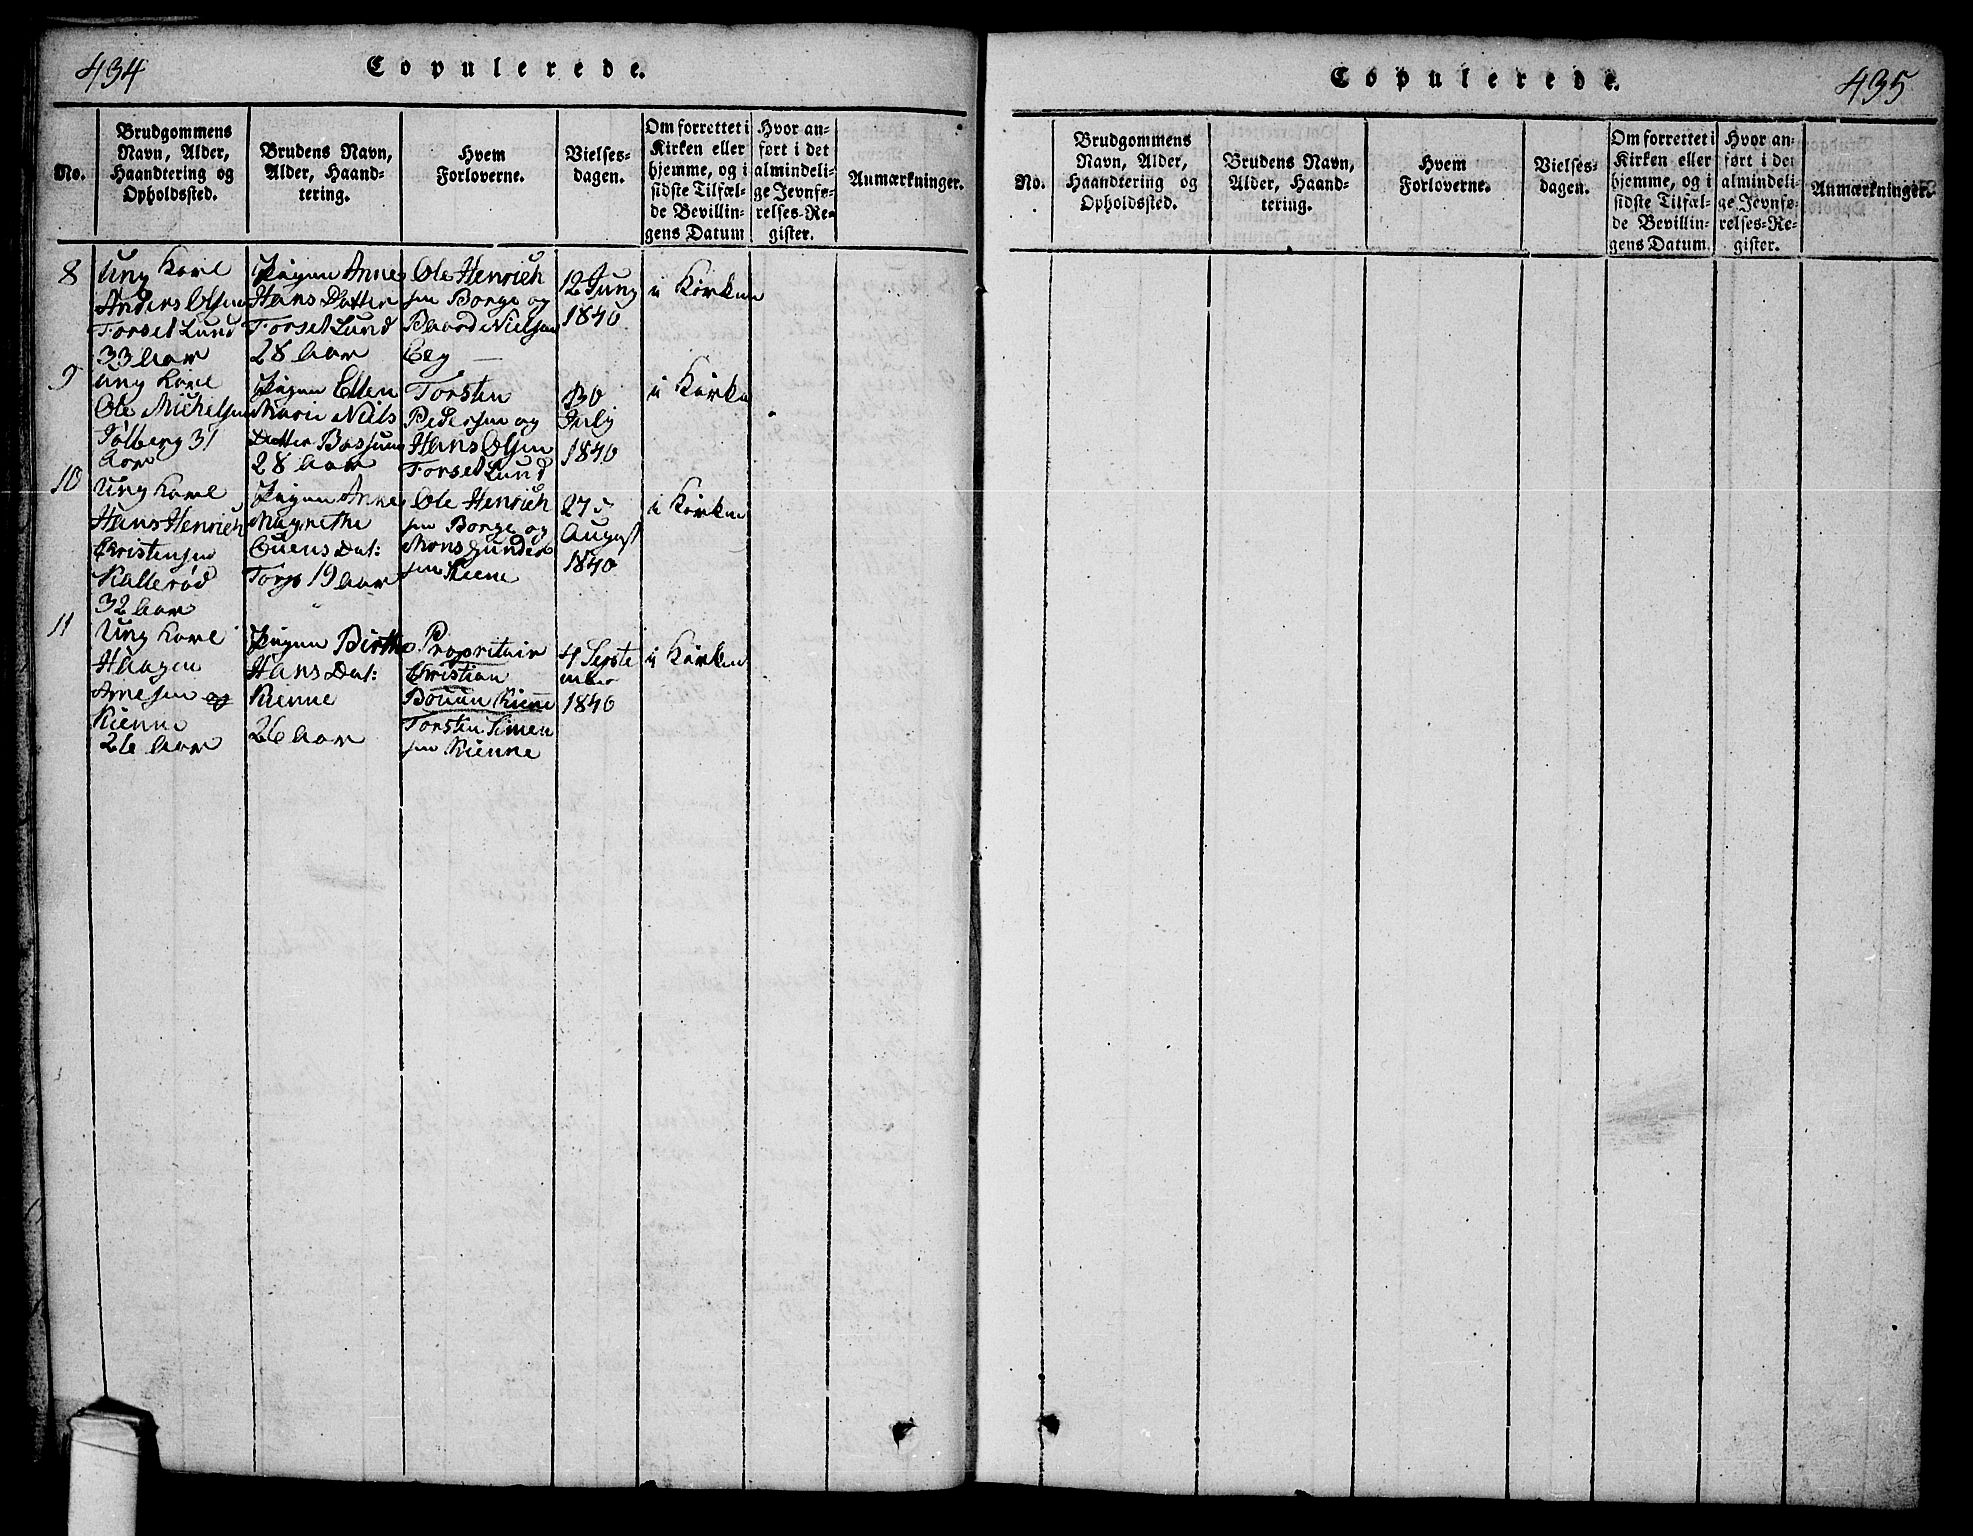 434
Copulerede.
No.
Brudgommens
Navn, Alder,
Haandtering og
Opholdssted.
Brudens Navn,
Alder, Haand-
tering.
Hvem
Forloverne.
Vielses-
dagen.
Om forrettet i
Kirken eller
hjemme, og i
sidste Tilfæl-
de Bevillin-
gens Datum
Hvor an-
ført i det
almindeli-
ge Jevnfø-
relses-Re-
gister.
Anmærkninger.
8
Ung Karl
Anders Olsen
Torset Lund
33 Aar
Pigen Anne
Hans Datter
Torset Lund
28 Aar
Ole Henrich
sen Borge og
Baard Nielsen
Eeg
12 Juny
1840
i Kirken
9
Ung Karl
Ole Michelsen
Tølberg 31
Aar
Pigen Ellen
Marie Niels
Datter
28 Aar
Torsten
Pedersen og
Hans Olsen
Torset Lund
30
July
1840
i Kirken
10
Ung Karl
Hans Henrich
Christensen
Kallerød
32 Aar
Pigen Anne
Magrethe
Euens Dat:
Torp 19 Aar
Ole Henrich
sen Borge og
Mons Gunder
sen Kiene
27
August
1840
i Kirken
11
Ung Karl
Haagen
Arnesen og
Kienne
26 Aar
Pigen Birthe
Hans Dat:
Kienne
26 Aar
Propritair
Christian
Kiene
Torsten Simen
sen Kienne
4 Septe
mber
1840
i Kirken
435
Copulerede.
No.
Brudgommens
Navn, Alder,
Haandtering og
Opholdssted.
Brudens Navn,
Alder, Haand-
tering.
Hvem
Forloverne.
Vielses-
dagen.
Om forrettet i
Kirken eller
hjemme, og i
sidste Tilfæl-
de Bevillin-
gens Datum.
Hvor an-
ført i det
almindeli-
ge Jevnfø-
relses-Re-
gister.
Anmærkninger.